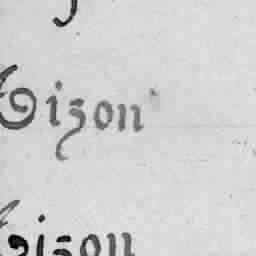 Tizon
Tizon